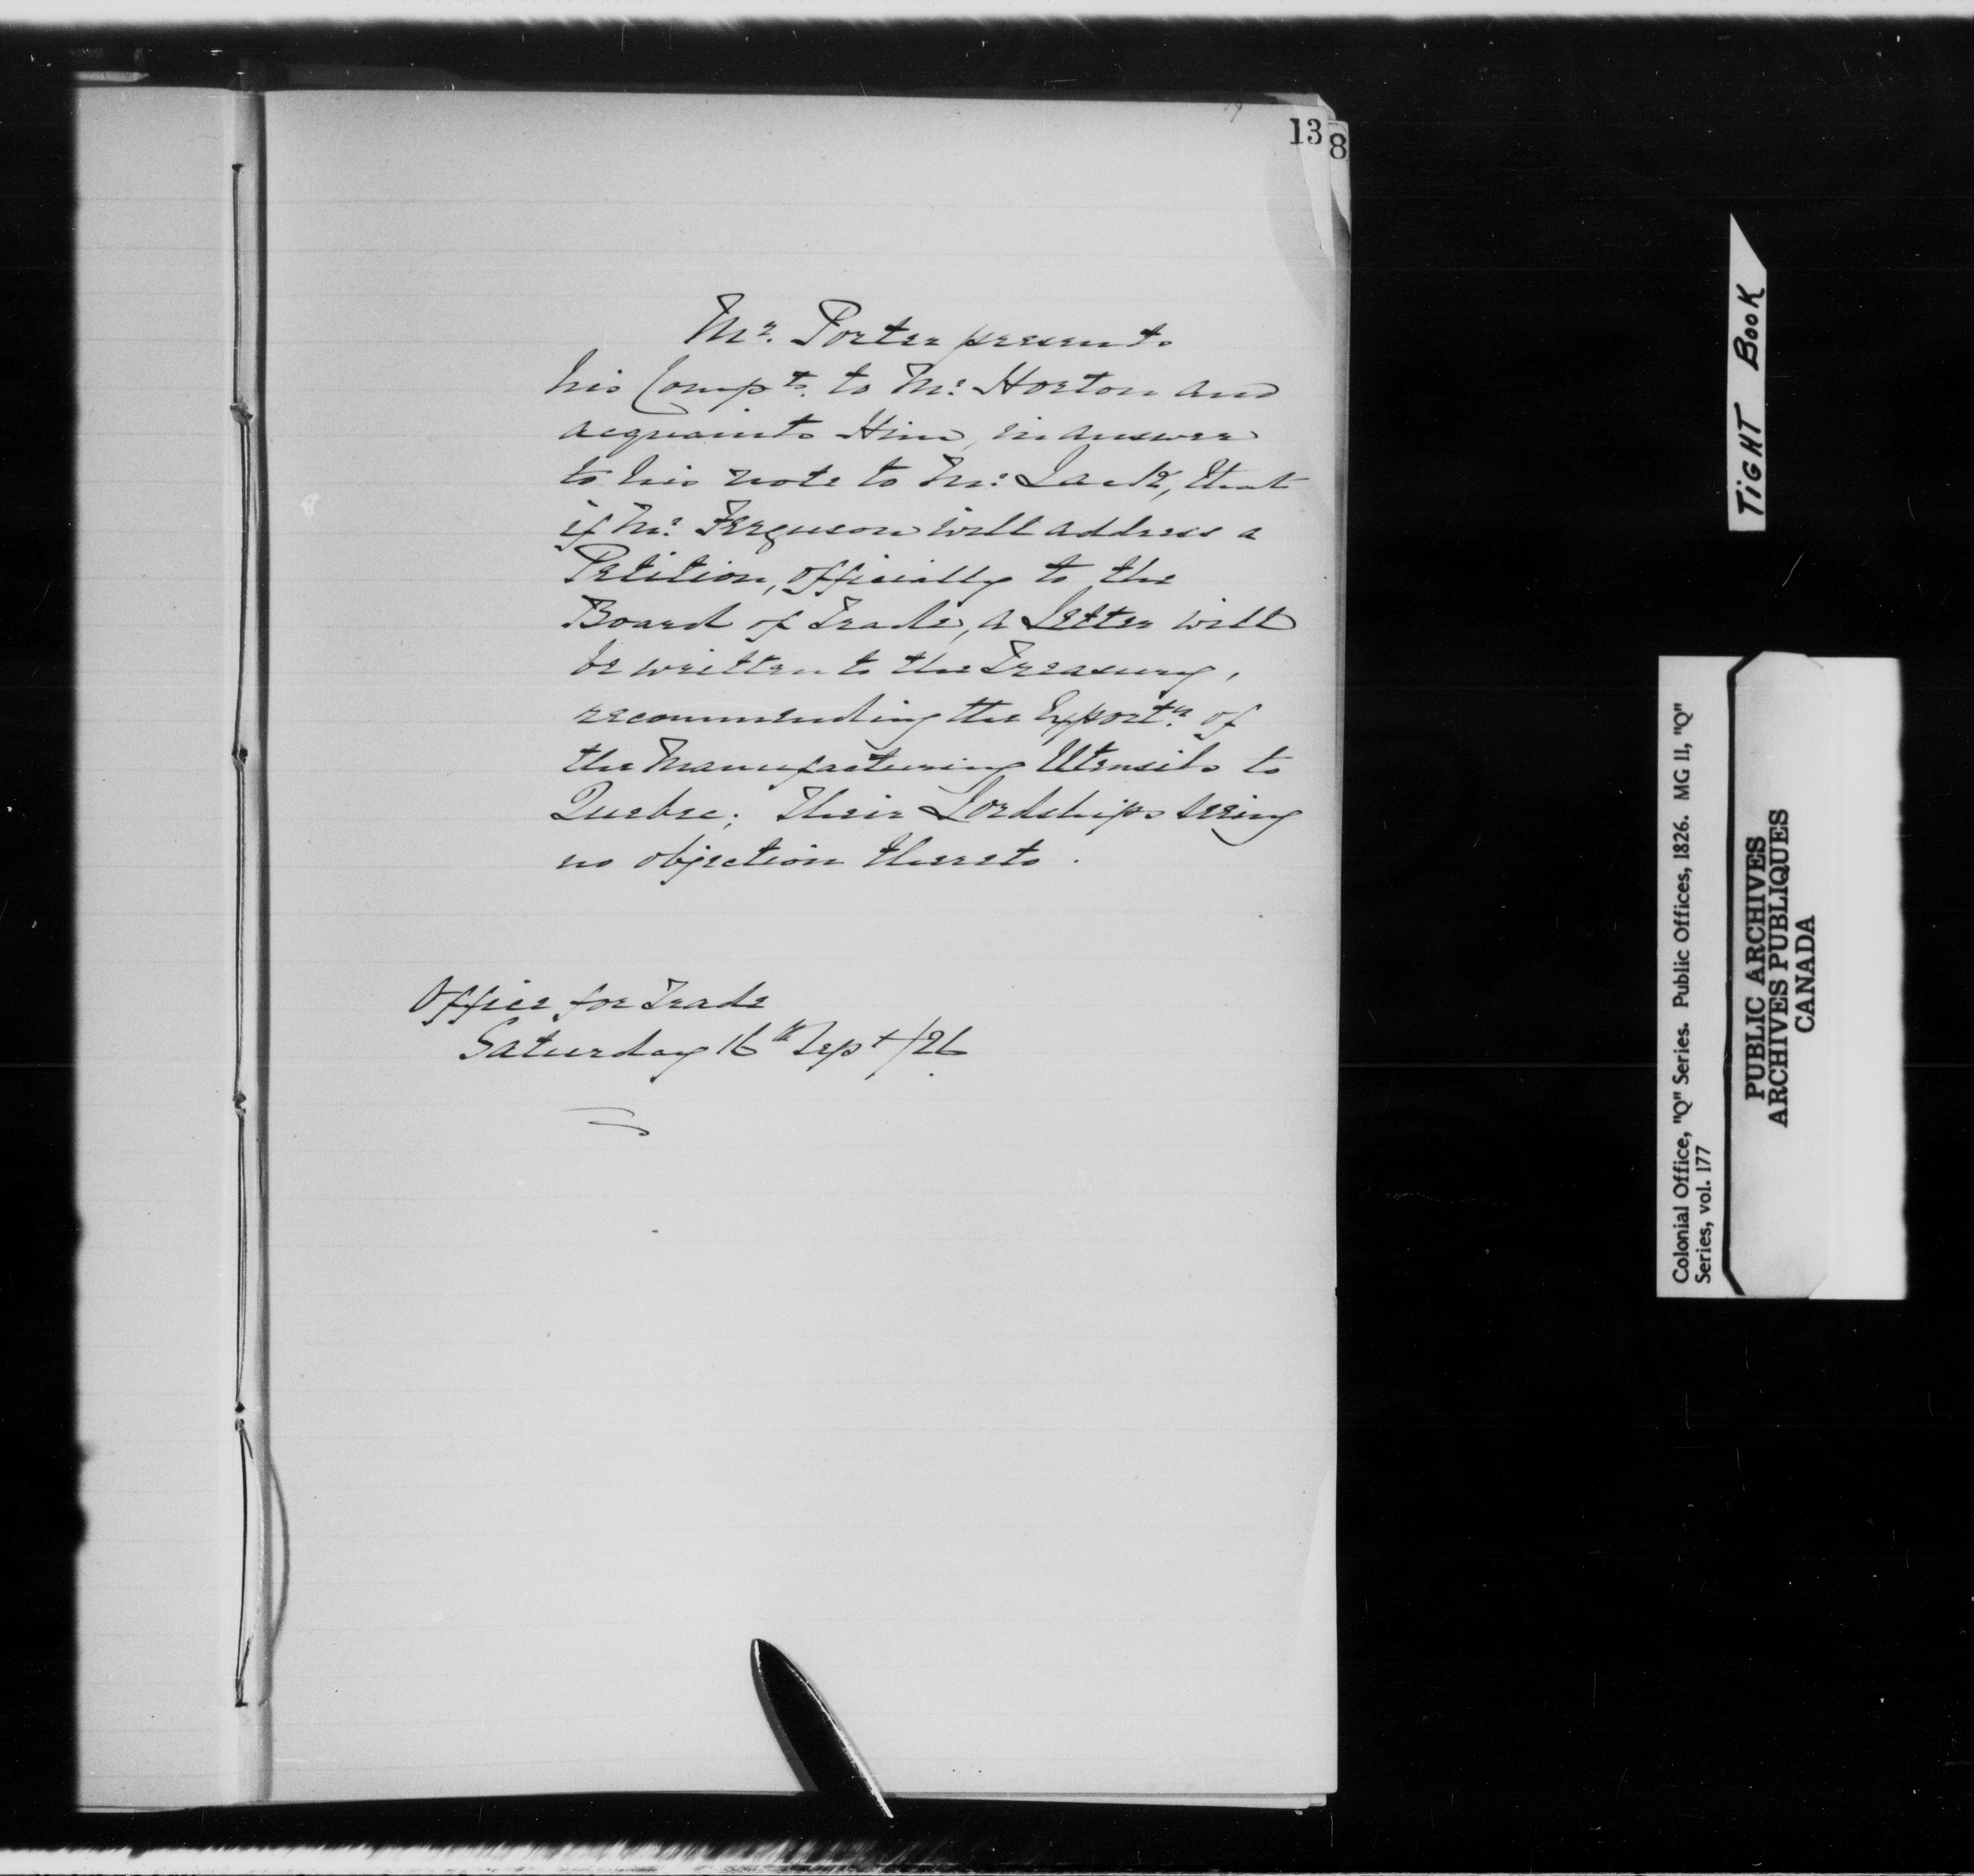 13
8
Mr. Porter presents
his Compts. to Mr. Horton and
acquaints Him, in answer
to his note to Mr. Lack, that
if Mr. Ferguson will address a
Petition, officially to the
Board of Trade, a Letter will
be written to the Treasury,
recommending the Exportn. of
the Manufacturing Utensils to
Quebec; Their Lordships seeing
no objection thereto.
Office for Trade
Saturday 16th Sept/26.
TIGHT BOOK
Colonial Office, "Q" Series. Public Offices, 1826. MG 11, "Q"
Series, vol. 177
PUBLIC ARCHIVES
ARCHIVES PUBLIQUES
CANADA